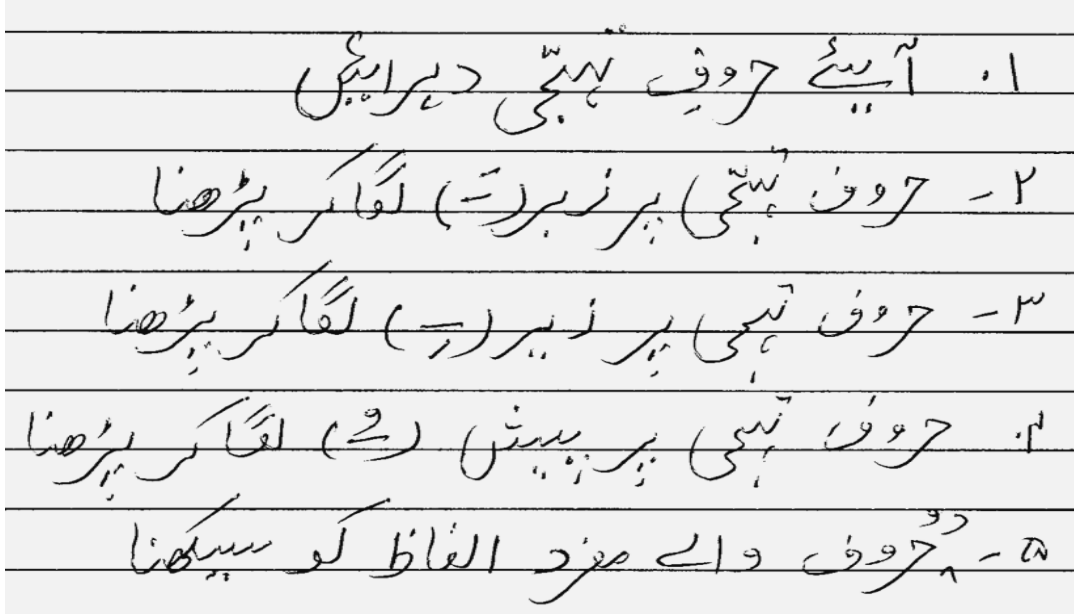 ۱. آیئے حروفِ تہجّی دہرایئں
۲۔ حروف تہجّی پر زبر (ـَ) لگا کر پڑھنا
۳۔ حروف تہجی پر زیر (ـِ) لگا کر پڑھنا
۴. حروف تہجی پر پیش (ـُ) لگا کر پڑھنا
۵۔ دو حروف والے مفرد الفاظ کو سیکھنا